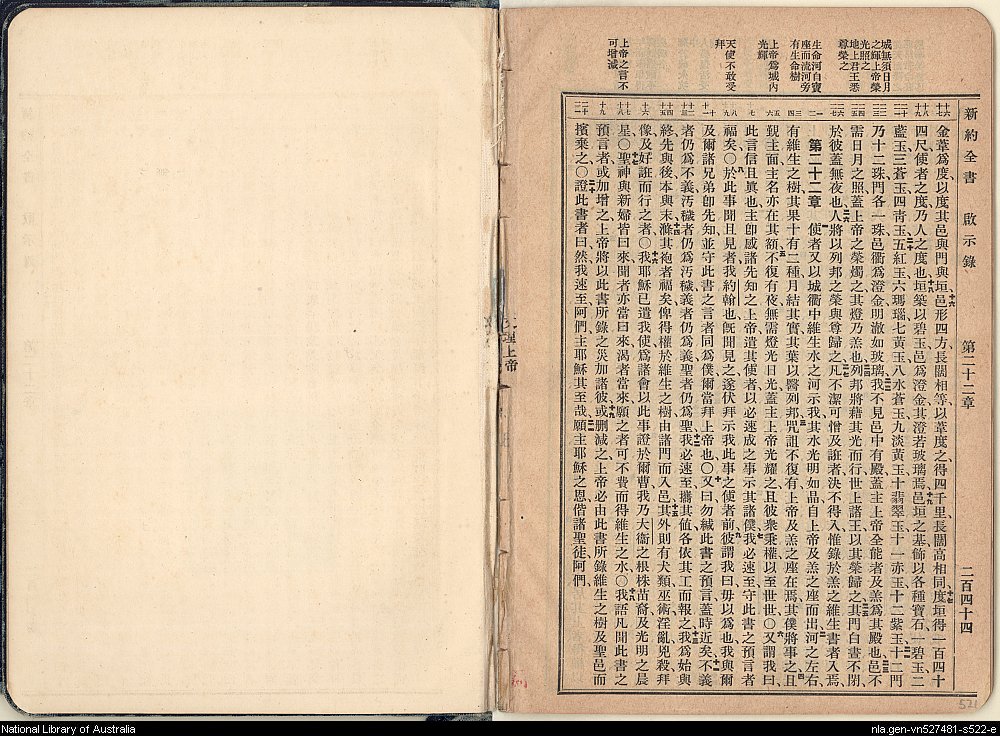 新約全書 啟示錄 第二十二章 二百四十四
城無須日月
之輝上帝榮
光照之
地上君王悉
尊榮之
生命河自寶
座而流河旁
有生命樹
上帝為城內
光輝
天使不敢受
拜
上帝之言不
可增減
金葦為度以度其邑與門與垣邑形四方長闊相等以葦度之得四千里長闊高相同度垣得一百四十
四尺使者之度乃人之度也垣築以碧玉邑為澄金其澄若玻璃焉邑垣之基飾以各種寶石一碧玉二
藍玉三蒼玉四青玉五紅玉六瑪瑙七黃玉八水蒼玉九淡黃玉十翡翠玉十一赤玉十二紫玉十二門
乃十二珠門各一珠邑衢為澄金明澈如玻璃我不見邑中有殿蓋主上帝全能者及羔為其殿也邑不
需日月之照蓋上帝之榮燭之其燈乃羔也列邦將藉其光而行世上諸王以其榮歸之其門白晝不閉
於彼蓋無夜也人將以列邦之榮與尊歸之凡不潔可憎及誑者決不得入惟錄於羔之維生書者入焉
第二十二章 使者又以城衢中維生水之河示我其水光明如晶自上帝及羔之座而出河之左右
有維生之樹其果十有二種月結其實其葉以醫列邦咒詛不復有上帝及羔之座在焉其僕將事之且
覲主面主名亦在其額不復有夜無需燈光日光蓋主上帝光耀之且彼衆秉權以至世世〇又謂我曰
此言信且眞也主卽感諸先知之上帝遣其使者以必速成之事示其諸僕我必速至守此書之預言者
福矣〇於此事聞且見者我約翰也旣聞見之遂伏拜示我此事之使者前彼謂我曰毋以為也我與爾
及爾諸兄弟卽先知並守此書之言者同為僕爾當拜上帝也〇又曰勿緘此書之預言蓋時近矣不義
者仍為不義汚穢者仍為汚穢義者仍為義聖者仍為聖我必速至攜其值各依其工而報之我為始與
終先與後本與末滌其袍者福矣俾得權於維生之樹由諸門而入邑其外則有犬類巫術淫亂兇殺拜
像及好誑而行之者〇我耶穌已遣我使為諸會以此事證於爾曹我乃大衞之根株苗裔及光明之晨
星〇聖神與新婦皆曰來聞者亦當曰來渴者當來願之者可不費而得維生之水〇我語凡聞此書之
預言者或加增之上帝將以此書所錄之災加諸彼或删減之上帝必由此書所錄維生之樹及聖邑而
擯棄之〇證此書者曰然我速至阿們主耶穌其至哉願主耶穌之恩偕諸聖徒阿們
理上帝
521
National Library of Australia
nla.gen-vn527481-s522-e